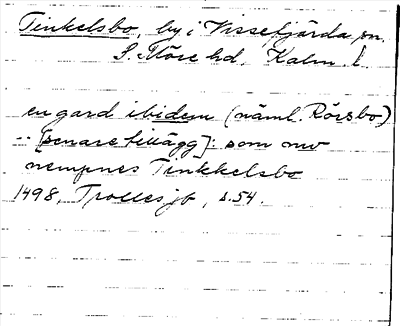 Tinkelsbo, by i Vissefjärda sn.
S. Möre hd. Kalm. l.
en gard ibidem (näml. Rörsbo)
-- [senare tillägg]: som nw
nempnes Tinkkelsbo
1498, Trolles jb, s. 54.